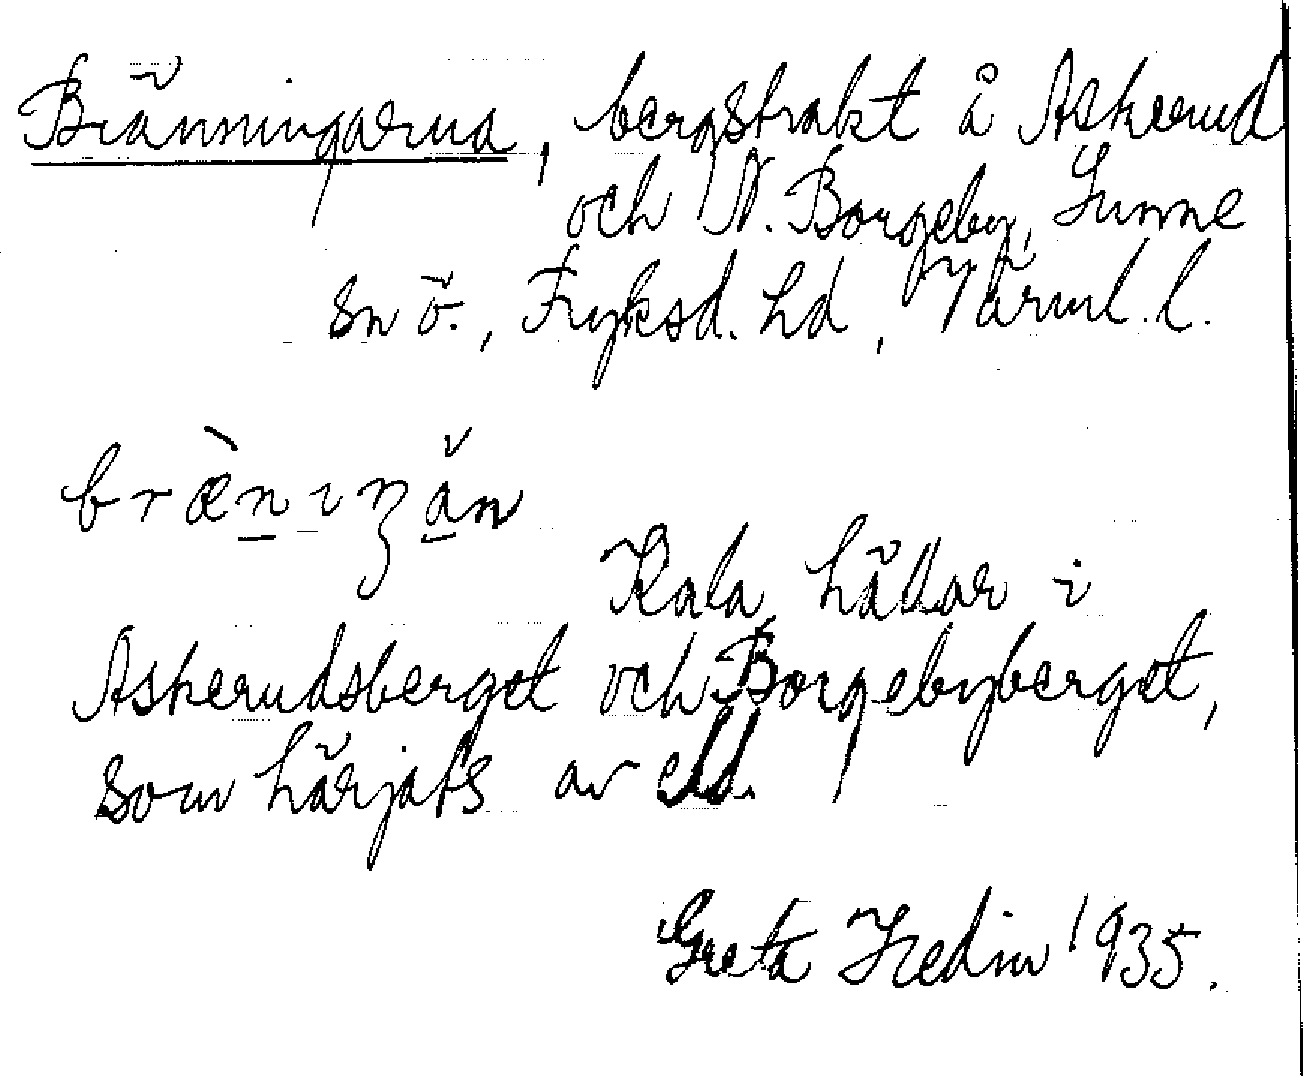 Bränningarna, bergstrakt å Askerud
och N. Borgeby, Sunne
sn ö., Fryksd. hd, Värml. l.
bræ̀niŋăn
Kala hällar i
Askerudsberget och Borgebyberget,
som härjats av eld.
Greta Hedin 1935.